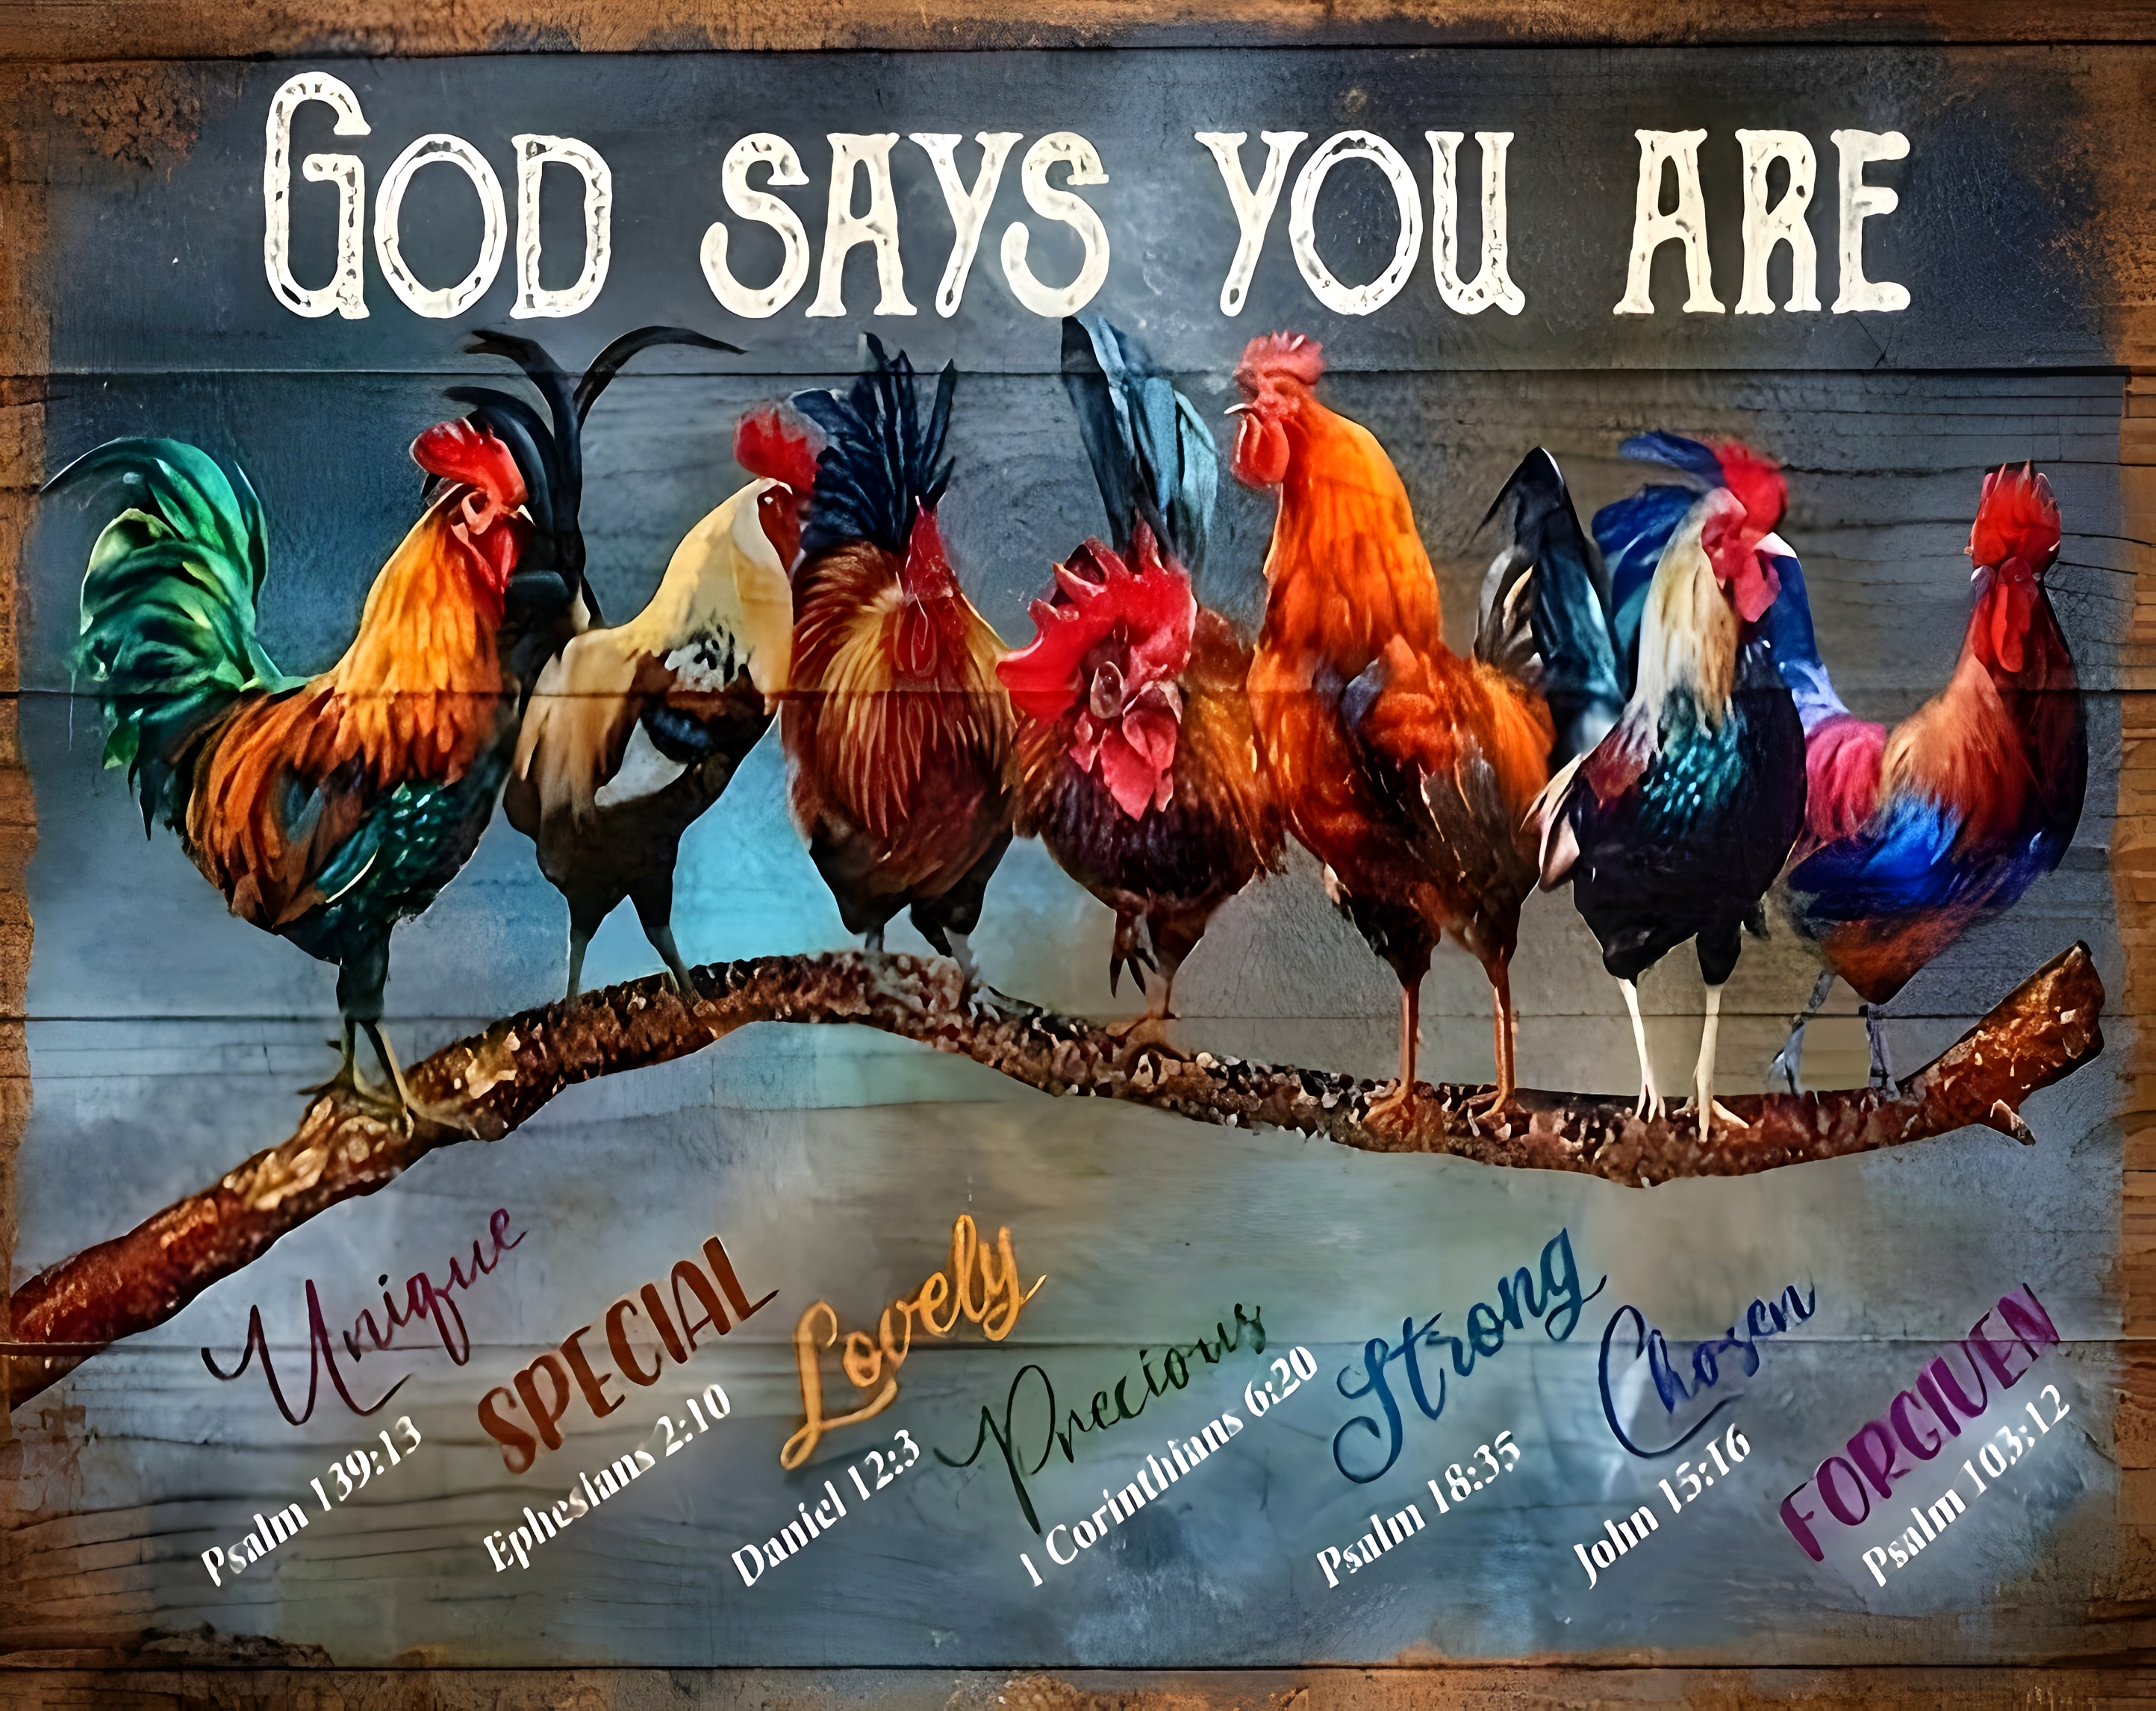 GOD SAYS YOU ARE
Unique
Psalm 139:13
SPECIAL
Ephesians 2:10
Lovely
Daniel 12:3
Precious
1 Corinthians 6:20
Strong
Psalm 18:35
Chosen
John 15:16
FORGIVEN
Psalm 103:12